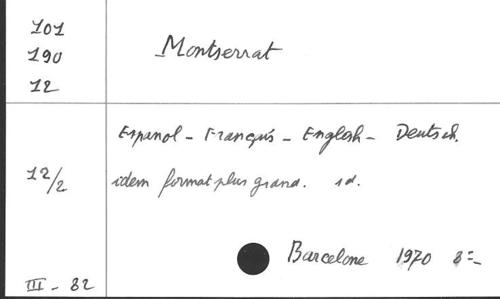 101
190
12
Montserrat
Espanol - Français - English - Deutsch.
12/2 idem format plus grand. sd.
Barcelone 1970 8=
III - 82